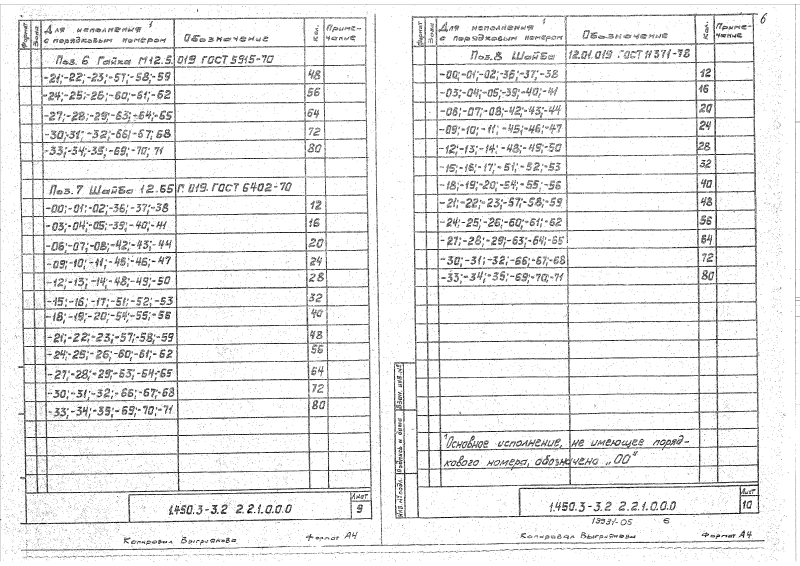 6
Формат Зона Для исполнения ¹ с порядковым номером Обозначение Кол. Приме-чание
Поз. 6 Гайка М12.5.019 ГОСТ 5915-70
-21;-22;-23;-57;-58;-59 48
-24;-25;-26;-60;-61;-62 56
-27;-28;-29;-63;-64;-65 64
-30;-31;-32;-66;-67;-68 72
-33;-34;-35;-69;-70;71 80
Поз. 7 Шайба 12.65Г.019.ГОСТ 6402-70
-00;-01;-02;-36;-37;-38 12
-03;-04;-05;-39;-40;-41 16
-06;-07;-08;-42;-43;-44 20
-09;-10;-11;-45;-46;-47 24
-12;-13;-14;-48;-49;-50 28
-15;-16;-17;-51;-52;-53 32
-18;-19;-20;-54;-55;-56 40
-21;-22;-23;-57;-58;-59 48
-24;-25;-26;-60;-61;-62 56
-27;-28;-29;-63;-64;-65 64
-30;-31;-32;-66;-67;-68 72
-33;-34;-35;-69;-70;-71 80
1.450.3-3.2 2.2.1.0.0.0
Лист
9
Копировал Выгриянова Формат А4
Формат Зона Для исполнения ¹ с порядковым номером Обозначение Кол. Приме-чание
Поз. 8 Шайба 12.01.019 ГОСТ 11371-78
-00;-01;-02;-36;-37;-38 12
-03;-04;-05;-39;-40;-41 16
-06;-07;-08;-42;-43;-44 20
-09;-10;-11;-45;-46;-47 24
-12;-13;-14;-48;-49;-50 28
-15;-16;-17;-51;-52;-53 32
-18;-19;-20;-54;-55;-56 40
-21;-22;-23;-57;-58;-59 48
-24;-25;-26;-60;-61;-62 56
-27;-28;-29;-63;-64;-65 64
-30;-31;-32;-66;-67;-68 72
-33;-34;-35;-69;-70;-71 80
¹Основное исполнение, не имеющее поряд-
кового номера, обозначено „00"
Взам. инв. №
Подпись и дата
Инв. № подл.
1.450.3-3.2 2.2.1.0.0.0
Лист
10
19931-05 6
Копировал Формат А4